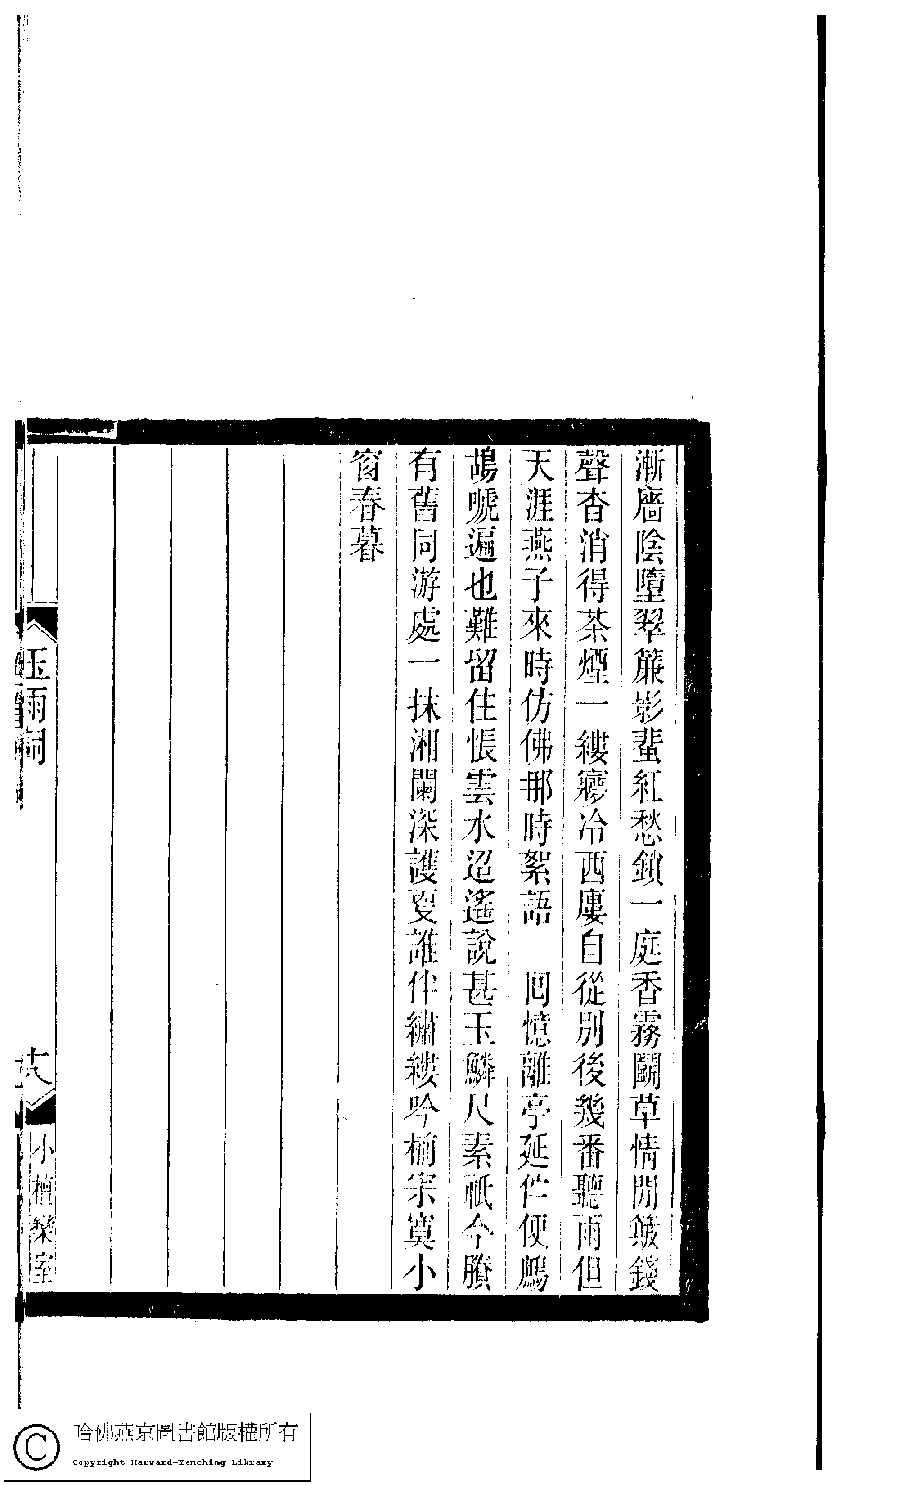 漸牆陰墮翠簾影蜚紅愁鎖一庭香霧鬭草情閒皺錢
聲杳消得茶煙一縷寱冷西廔自從別後幾番聽雨但
天涯燕子來時仿佛那時絮語　回憶離亭延佇便鷓
鴣嗁遍也難留住悵雲水迢遙說甚玉鱗尺素祇今賸
有舊同游處一抹湘闌深護夐誰伴繡縷吟楠宗寞小
窗春暮
玉雨詞
十八
小檀欒室
哈佛燕京圖書館版權所有
Copyright Harvard-Yenching Library